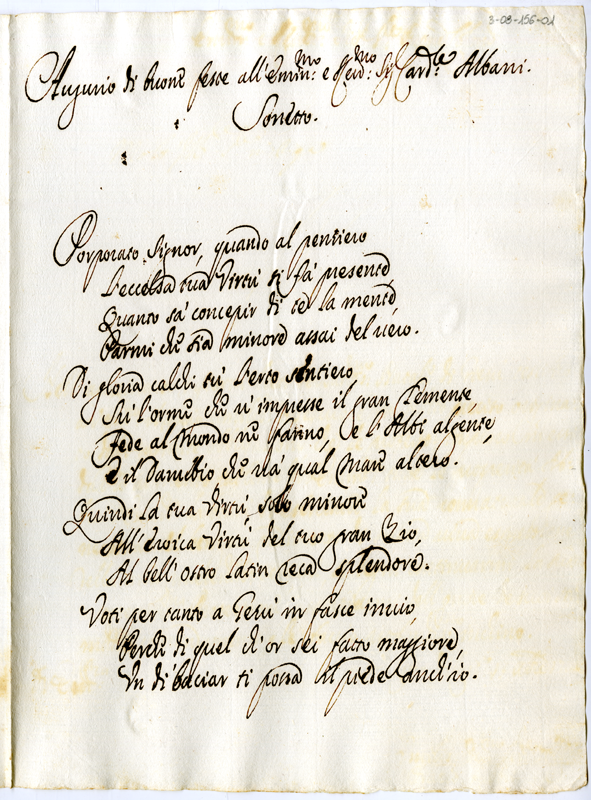 3-08-156-01
Augurio di buone feste all'Emin:mo e Rev:mo Sig Card:le Albani.
Sonetto.
Porporato Signor, quando al pensiero
L'eccelsa tua Virtù si fà presente,
Quanto sà concepir di te la mente,
Parmi che sia minore assai del vero.
Di gloria calchi tù l'erto sentiero
Sù l'orme che v'impresse il gran Clemente,
Fede al Mondo ne fanno, e l'Albi algente,
E il Danubbio che và qual Mare altero.
Quindi la tua Virtù, solo minore
All'eroica Virtù del tuo gran Zio,
Al bell'ostro Latin reca splendore.
Voti per tanto a Gesù in fasce invio,
Perche di quel ch'or sei fatto maggiore,
Un dì baciar ti possa il piede anch'io.